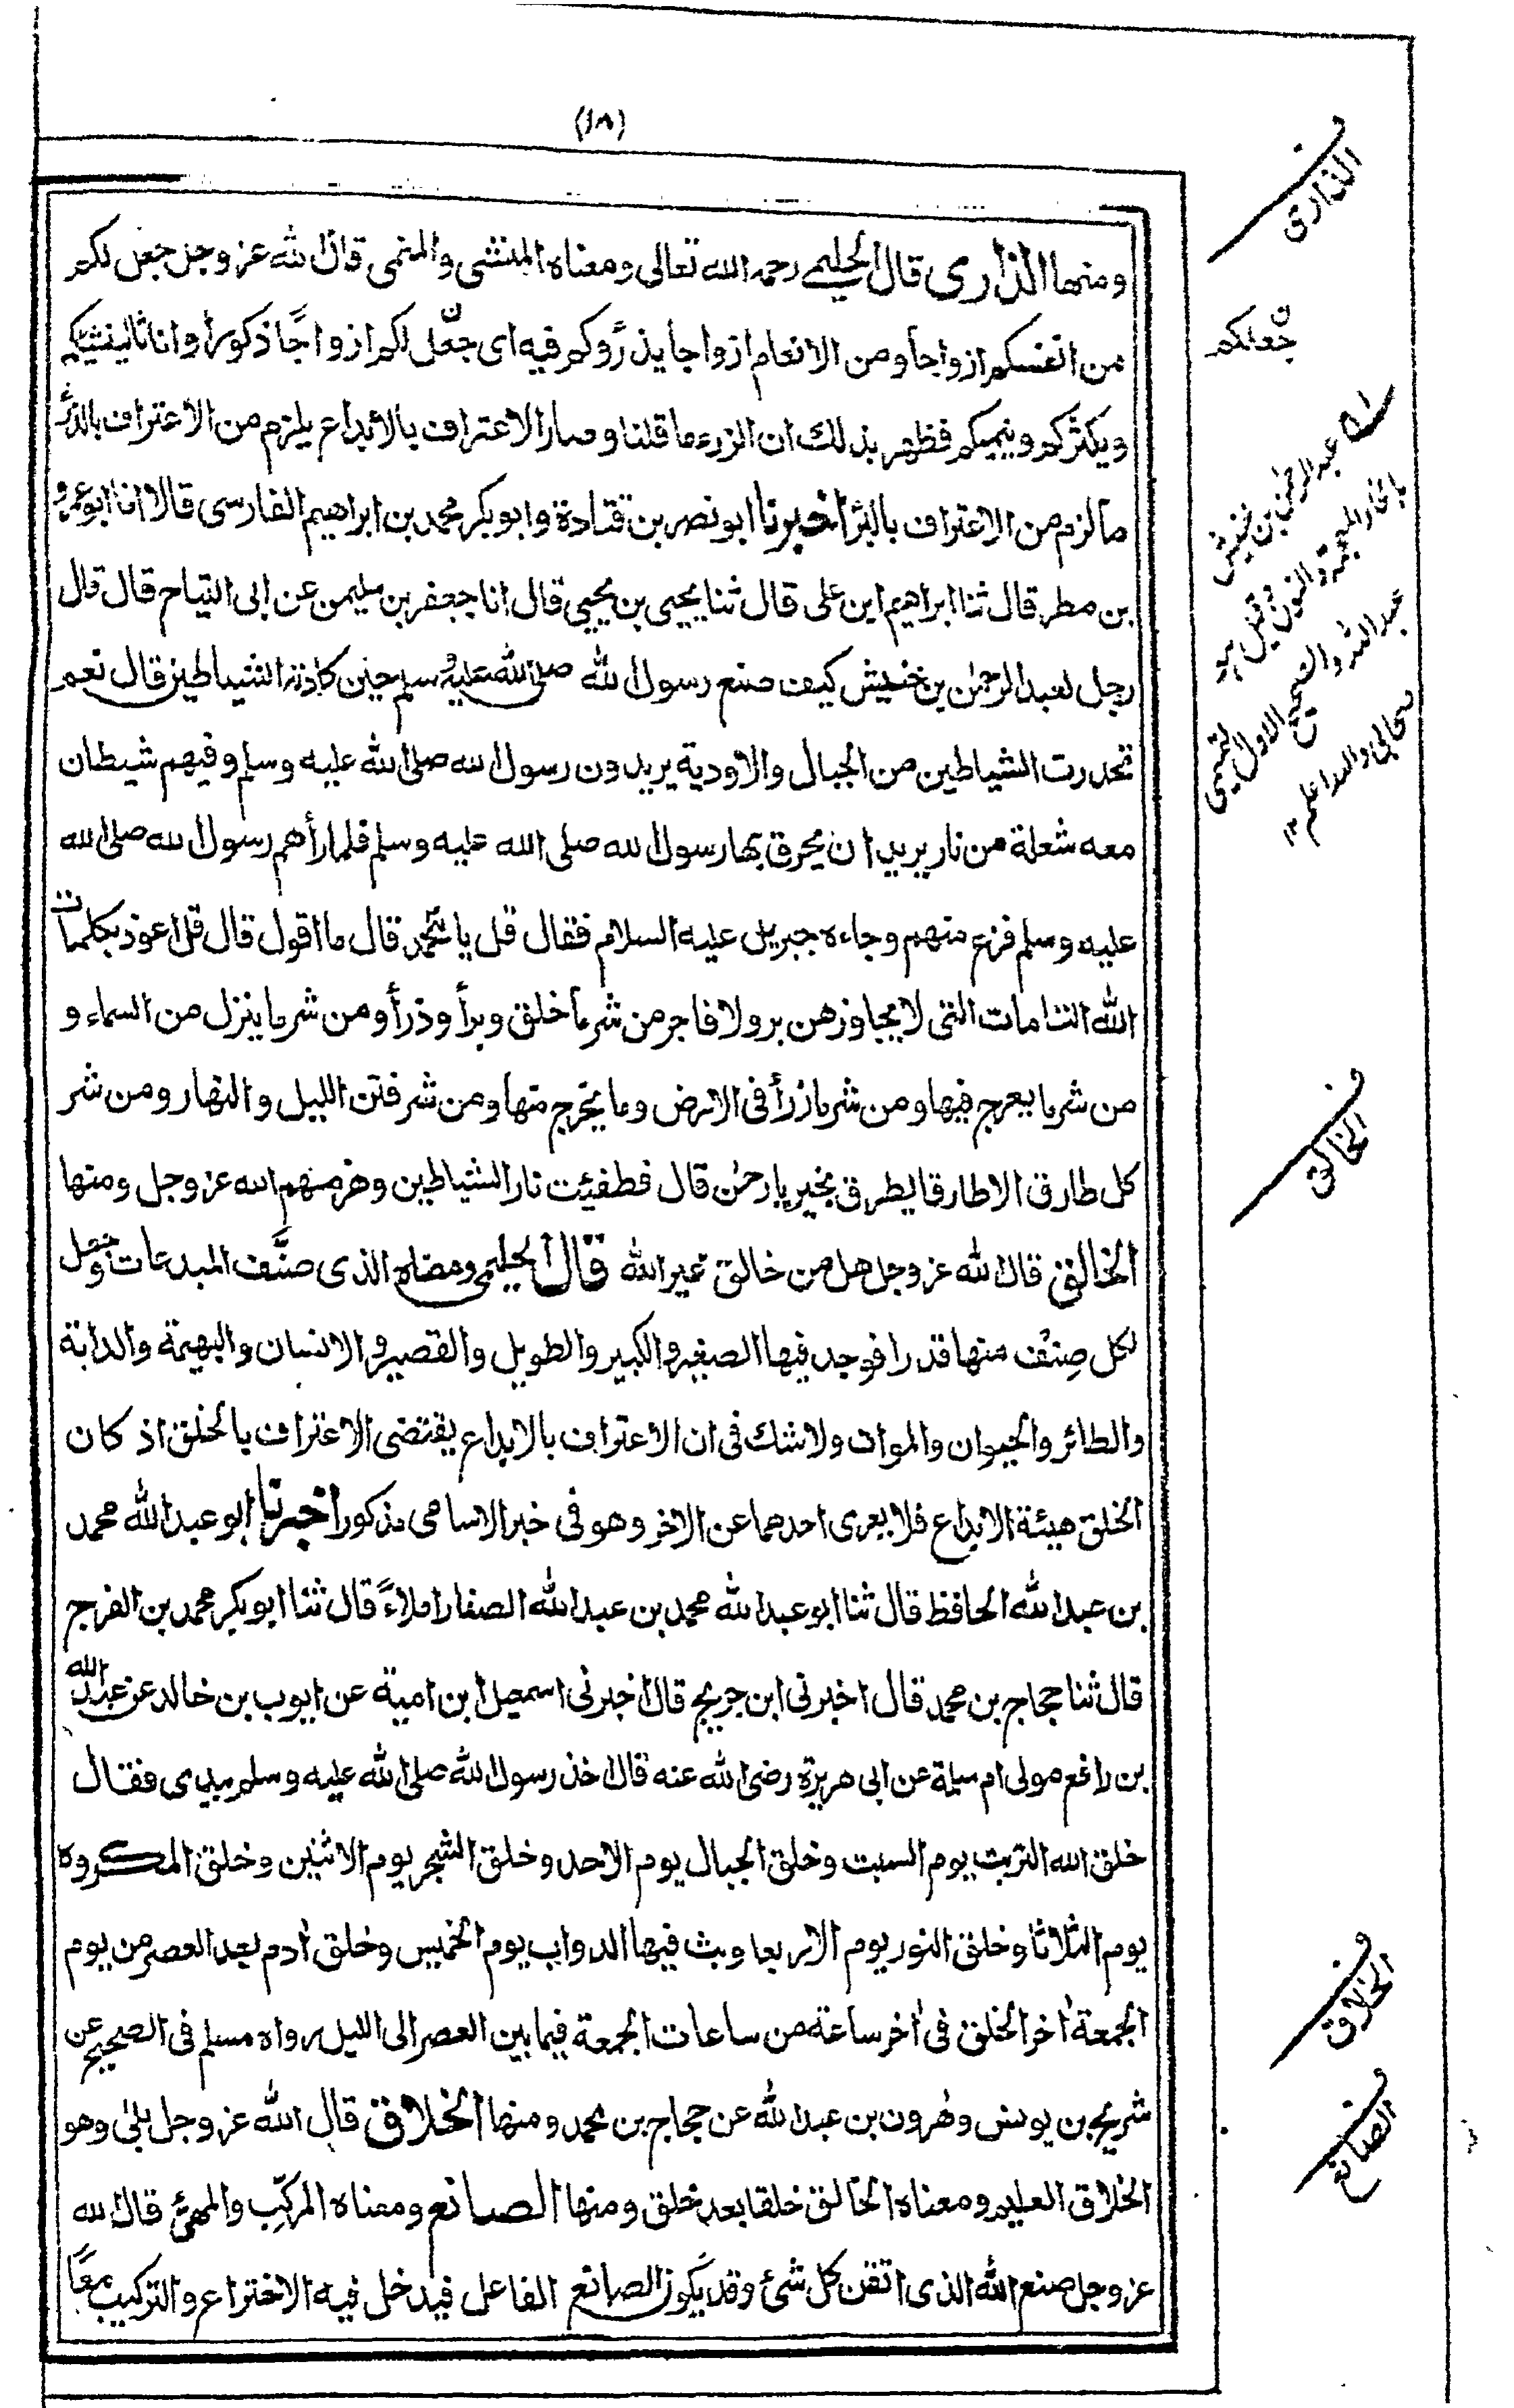 (١٨)
ومنها الذارى قال الحليمى رحمه الله تعالى ومعناه المنشى والمنمى قال الله عز وجل جعل لكم
من انفسكم ازواجا ومن الانعام ازواجا يذرؤكم فيه اى جعل لكم ازواجًا ذكورا واناثا لينشيكم
ويكثركم وينميكم فظهر بذلك ان الذرء ما قلنا وصار الاعتراف بالابداع يلزم من الاعتراف بالذرء
ما لزم من الاعتراف بالبرأ اخبرنا ابو نصر بن قتادة وابو بكر محمد بن ابراهيم الفارسى قالا انا ابو عمرو
بن مطر قال ثنا ابراهيم ابن على قال ثنا يحيى بن يحيى قال انا جعفر بن سليمن عن ابى التياح قال قال
رجل لعبد الرحمٰن بن خنبش كيف صنع رسول الله صلى الله عليه وسلم حين كادته الشياطين قال نعم
تحدرت الشياطين من الجبال والاودية يريدون رسول الله صلى الله عليه وسلم وفيهم شيطان
معه شعلة من نار يريد ان يحرق بها رسول الله صلى الله عليه وسلم فلما رأهم رسول الله صلى الله
عليه وسلم فزع منهم وجاءه جبريل عليه السلام فقال قل يا محمد قال ما اقول قال قل اعوذ بكلمات
الله التامات التى لا يجاوزهن بر ولا فاجر من شر ما خلق وبرأ وذرأ ومن شر ما ينزل من السماء و
من شر ما يعرج فيها ومن شر ما ذرأ فى الارض وما يخرج منها ومن شر فتن الليل والنهار ومن شر
كل طارق الا طارقا يطرق بخير يا رحمٰن قال فطفيئت نار الشياطين وهزمنهم الله عز وجل ومنها
الخالق قال الله عز وجل هل من خالق غير الله قال الحليمى ومعناه الذى صنَّف المبدعات وجعل
لكل صِنْف منها قدرا فوجد فيها الصغير والكبير والطويل والقصير والانسان والبهيمة والدابة
والطائر والحيوان والموات ولا شك فى ان الاعتراف بالابداع يقتضى الاعتراف بالخلق اذ كان
الخلق هيئة الابداع فلا يعرى احدهما عن الاخر وهو فى خبر الاسامى مذكور اخبرنا ابو عبد الله محمد
بن عبد الله الحافظ قال ثنا ابو عبد الله محمد بن عبد الله الصفار املاءً قال ثنا ابو بكر محمد بن الفرج
قال ثنا حجاج بن محمد قال اخبرنى ابن جريج قال اخبرنى اسمعيل ابن امية عن ايوب بن خالد عن عبد الله
بن رافع مولى ام سلمة عن ابى هريرة رضى الله عنه قال اخذ رسول الله صلى الله عليه وسلم بيدى فقال
خلق الله التربة يوم السبت وخلق الجبال يوم الاحد وخلق الشجر يوم الاثنين وخلق المكروه
يوم الثلاثا وخلق النور يوم الاربعا وبث فيها الدواب يوم الخميس وخلق اٰدم بعد العصر من يوم
الجمعة اٰخر الخلق فى اٰخر ساعة من ساعات الجمعة فيما بين العصر الى الليل رواه مسلم فى الصحيح عن
شريح بن يونس وهٰرون بن عبد الله عن حجاج بن محمد ومنها الخلاق قال الله عز وجل بلىٰ وهو
الخلاق العليم ومعناه الخالق خلقا بعد خلق ومنها الصانع ومعناه المركِّب والمهيّئ قال الله
عز وجل صنع الله الذى اتقن كل شئ وقد يكون الصانع الفاعل فيدخل فيه الاختراع والتركيب معًا
ف الذارى
ن جعل لكم
عبد الرحمٰن بن خنبش
بالخاء المعجمة والنون وقيل
عبد الله والصحيح الاول تميمى
صحابى والله اعلم ١٢
ف الخالق
ف الخلاق
ف الصانع